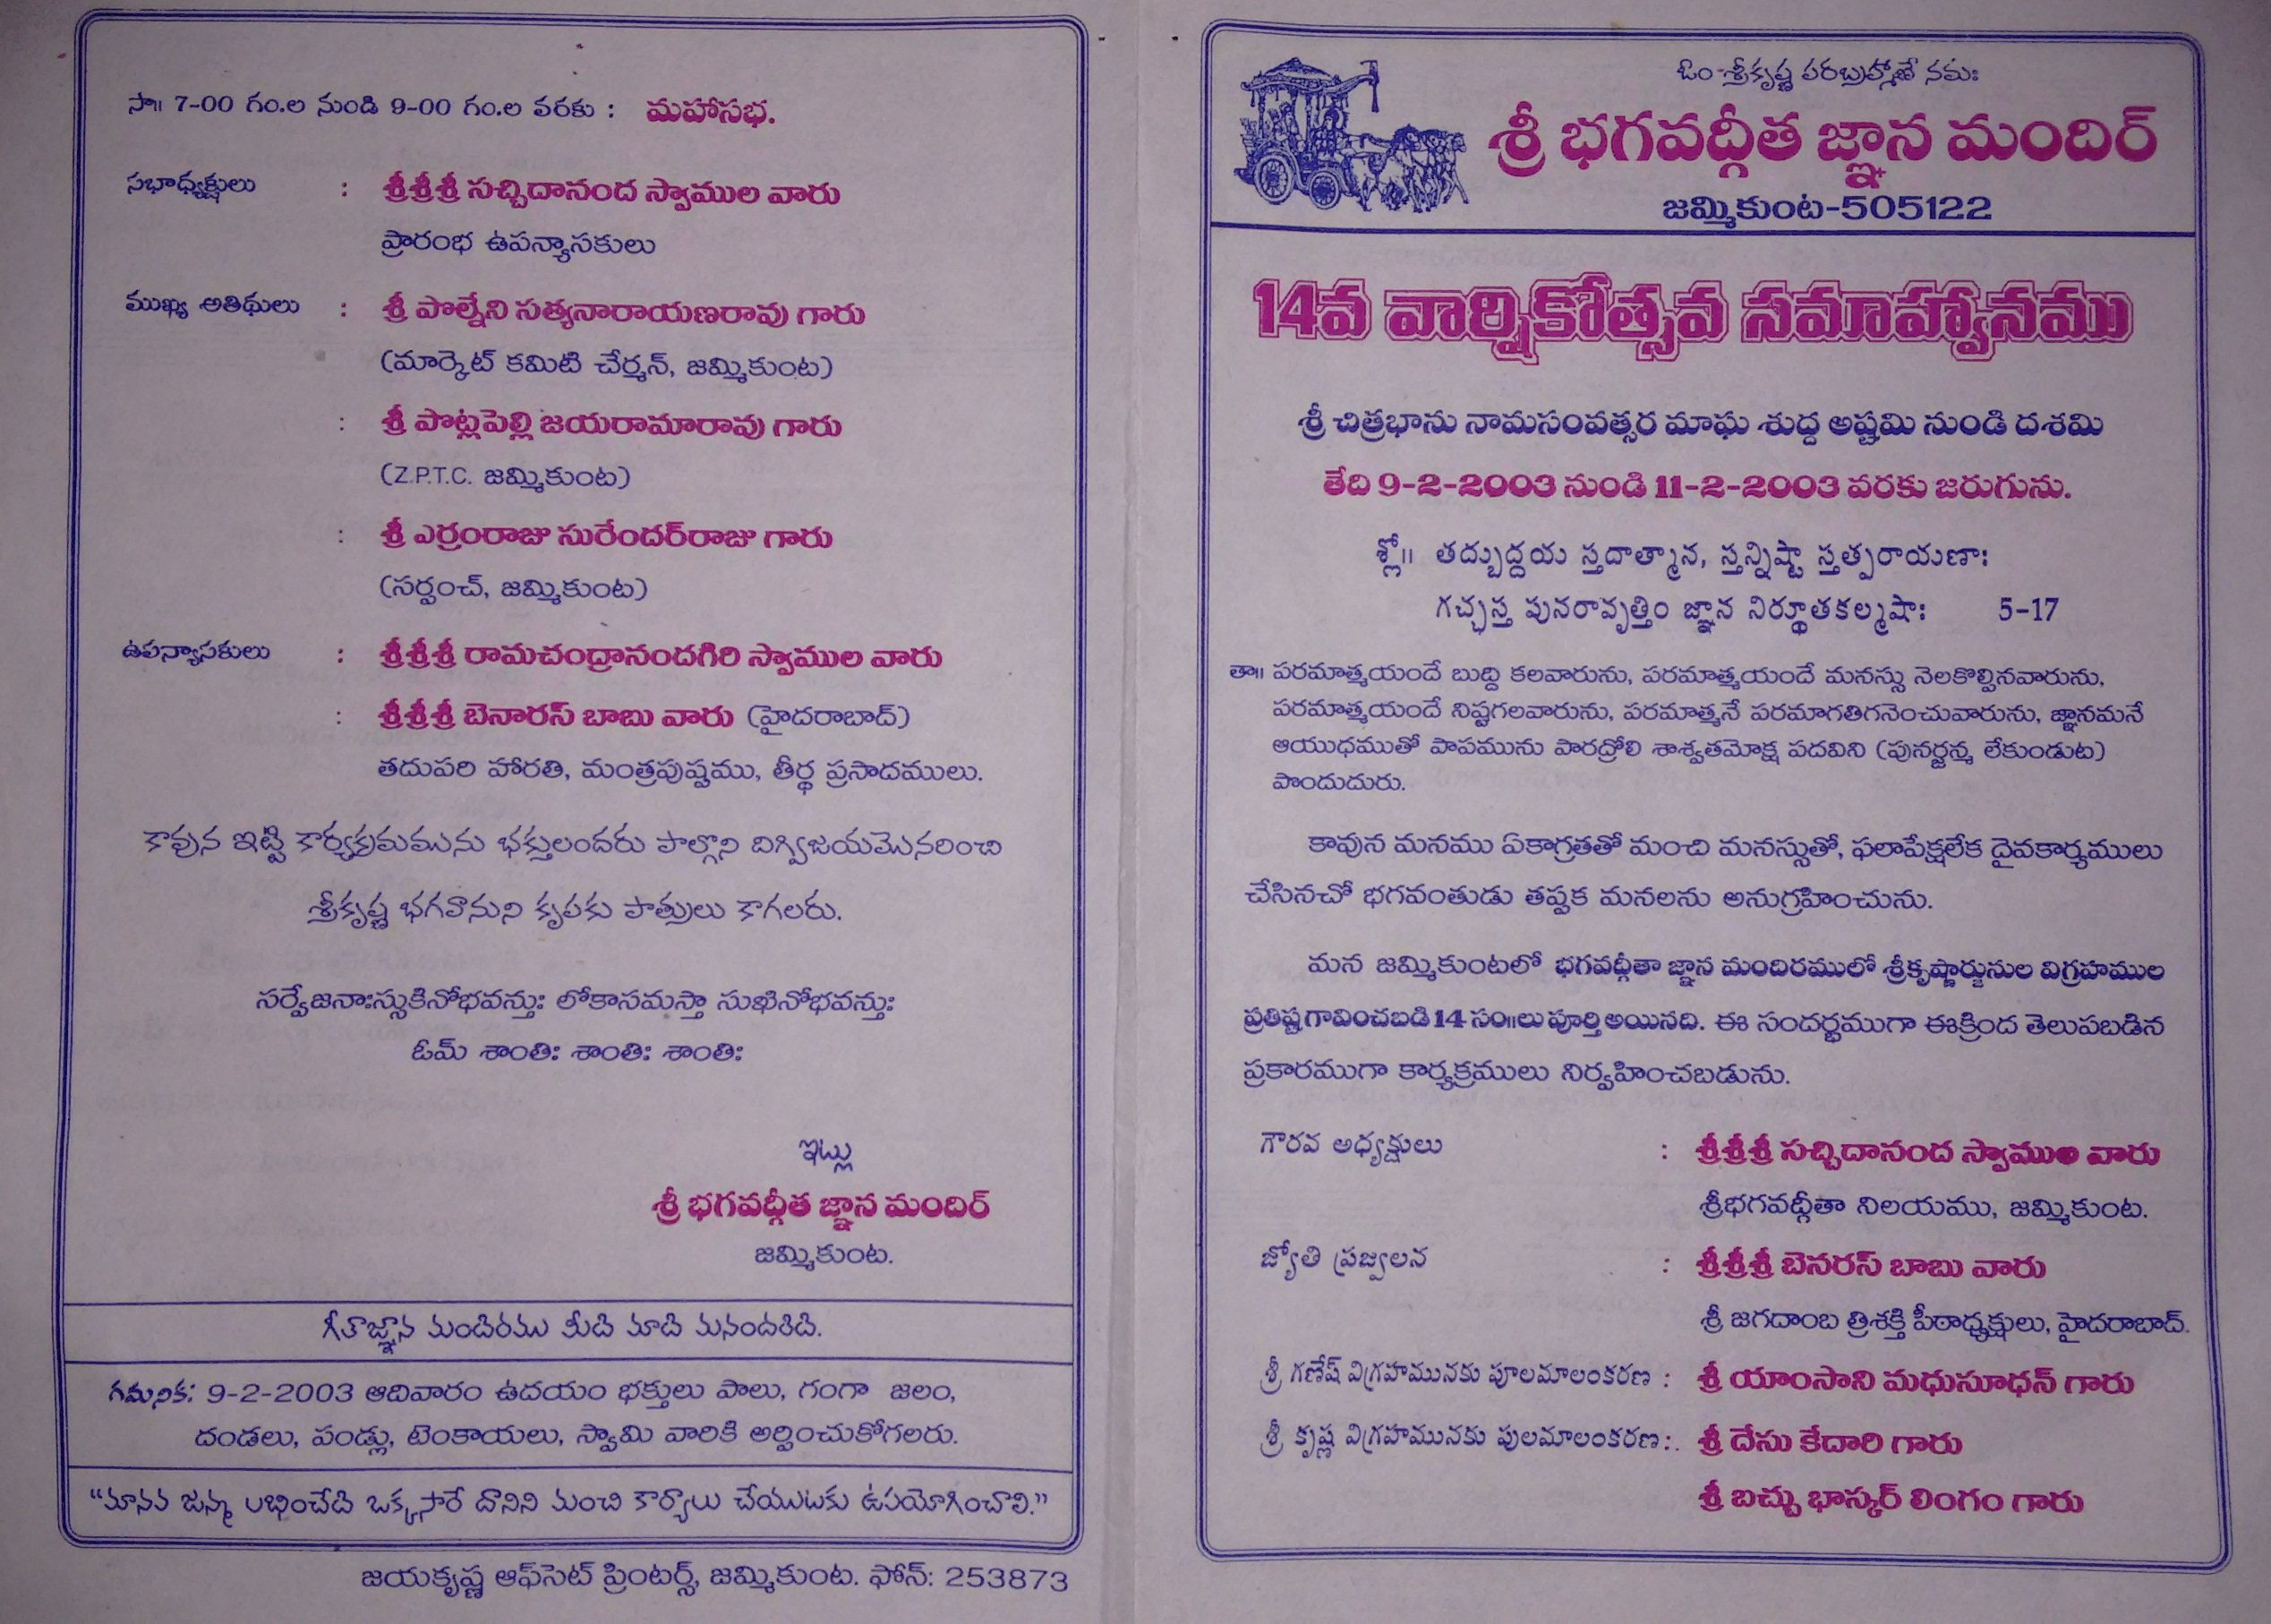 సా॥ 7-00 గం.ల నుండి 9-00 గం.ల వరకు : మహాసభ.
సభాధ్యక్షులు : శ్రీశ్రీశ్రీ సచ్చిదానంద స్వాముల వారు
ప్రారంభ ఉపన్యాసకులు
ముఖ్య అతిథులు : శ్రీ పొల్నేని సత్యనారాయణరావు గారు
(మార్కెట్ కమిటి చేర్మన్, జమ్మికుంట)
: శ్రీ పొట్లపెల్లి జయరామారావు గారు
(Z.P.T.C. జమ్మికుంట)
: శ్రీ ఎర్రంరాజు సురేందర్‌రాజు గారు
(సర్పంచ్, జమ్మికుంట)
ఉపన్యాసకులు : శ్రీశ్రీశ్రీ రామచంద్రానందగిరి స్వాముల వారు
: శ్రీశ్రీశ్రీ బెనారస్ బాబు వారు (హైదరాబాద్)
తదుపరి హారతి, మంత్రపుష్పము, తీర్థ ప్రసాదములు.
కావున ఇట్టి కార్యక్రమమును భక్తులందరు పాల్గొని దిగ్విజయమొనరించి
శ్రీకృష్ణ భగవానుని కృపకు పాత్రులు కాగలరు.
సర్వేజనాఃస్సుకినోభవన్తుః లోకాసమస్తా సుఖినోభవన్తుః
ఓమ్ శాంతిః శాంతిః శాంతిః
ఇట్లు
శ్రీ భగవద్గీత జ్ఞాన మందిర్
జమ్మికుంట.
గీతాజ్ఞాన మందిరము మీది మాది మనందరిది.
గమనిక: 9-2-2003 ఆదివారం ఉదయం భక్తులు పాలు, గంగా జలం,
దండలు, పండ్లు, టెంకాయలు, స్వామి వారికి అర్పించుకోగలరు.
“మానవ జన్మ లభించేది ఒక్కసారే దానిని మంచి కార్యాలు చేయుటకు ఉపయోగించాలి.”
జయకృష్ణ ఆఫ్‌సెట్ ప్రింటర్స్, జమ్మికుంట. ఫోన్: 253873
ఓం శ్రీకృష్ణ పరబ్రహ్మణే నమః
శ్రీ భగవద్గీత జ్ఞాన మందిర్
జమ్మికుంట-505122
14వ వార్షికోత్సవ సమాహ్వానము
శ్రీ చిత్రభాను నామసంవత్సర మాఘ శుద్ద అష్టమి నుండి దశమి
తేది 9-2-2003 నుండి 11-2-2003 వరకు జరుగును.
శ్లో॥ తద్బుద్దయ స్తదాత్మాన, స్తన్నిష్టా స్తత్పరాయణాః
గచ్ఛస్త పునరావృత్తిం జ్ఞాన నిర్ధూతకల్మషాః 5-17
తా॥ పరమాత్మయందే బుద్ది కలవారును, పరమాత్మయందే మనస్సు నెలకొల్పినవారును,
పరమాత్మయందే నిష్టగలవారును, పరమాత్మనే పరమాగతిగనెంచువారును, జ్ఞానమనే
ఆయుధముతో పాపమును పారద్రోలి శాశ్వతమోక్ష పదవిని (పునర్జన్మ లేకుండుట)
పొందుదురు.
కావున మనము ఏకాగ్రతతో మంచి మనస్సుతో, ఫలాపేక్షలేక దైవకార్యములు
చేసినచో భగవంతుడు తప్పక మనలను అనుగ్రహించును.
మన జమ్మికుంటలో భగవద్గీతా జ్ఞాన మందిరములో శ్రీకృష్ణార్జునుల విగ్రహముల
ప్రతిష్టగావించబడి 14 సం॥లు పూర్తి అయినది. ఈ సందర్భముగా ఈక్రింద తెలుపబడిన
ప్రకారముగా కార్యక్రములు నిర్వహించబడును.
గౌరవ అధ్యక్షులు : శ్రీశ్రీశ్రీ సచ్చిదానంద స్వాముల వారు
శ్రీభగవద్గీతా నిలయము, జమ్మికుంట.
జ్యోతి ప్రజ్వలన : శ్రీశ్రీశ్రీ బెనరస్ బాబు వారు
శ్రీ జగదాంబ త్రిశక్తి పీఠాధ్యక్షులు, హైదరాబాద్.
శ్రీ గణేష్ విగ్రహమునకు పూలమాలంకరణ : శ్రీ యాంసాని మధుసూధన్ గారు
శ్రీ కృష్ణ విగ్రహమునకు పులమాలంకరణ : శ్రీ దేసు కేదారి గారు
శ్రీ బచ్చు భాస్కర్ లింగం గారు